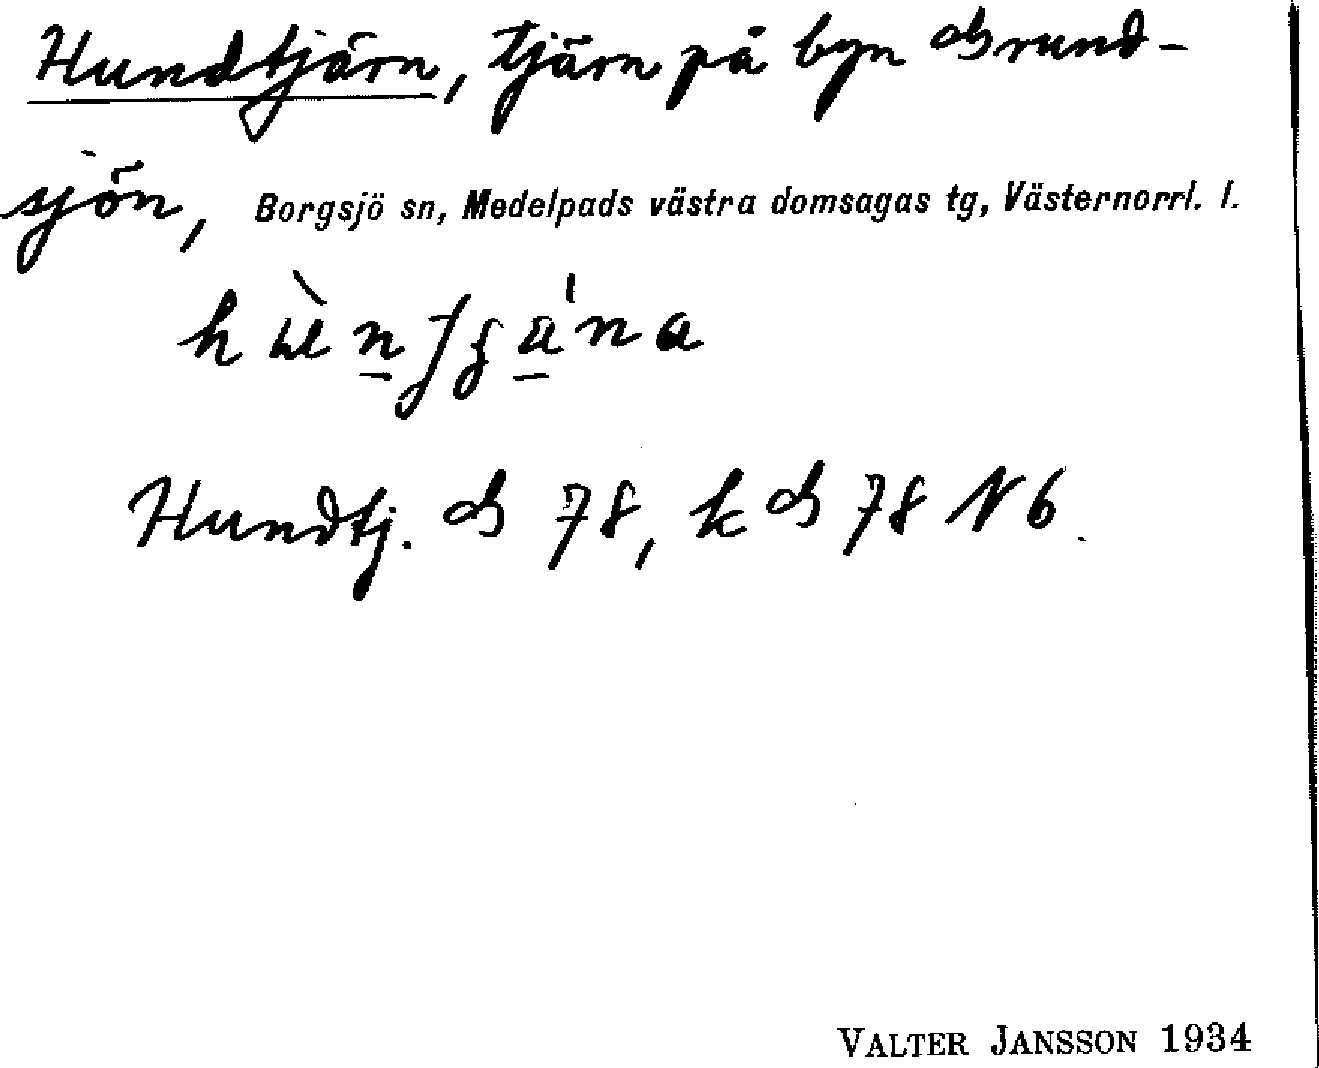 Hundtjärn, tjärn på byn Grund-
sjön, Borgsjö sn, Medelpads västra domsagas tg, Västernorrl. l.
Hundtj. G 78, k G 78 N 6.
VALTER JANSSON 1934